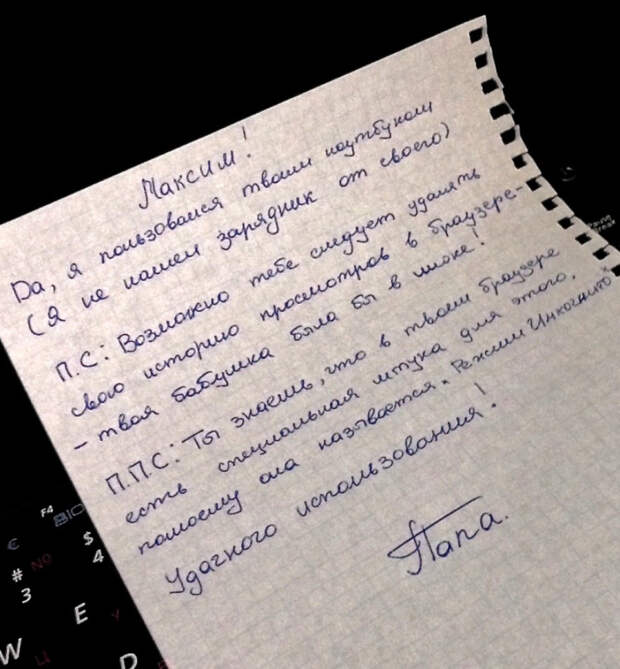 Максим!
Да, я пользовался твоим ноутбуком
(я не нашел зарядник от своего)
П.С: Возможно тебе следует удалять
свою историю просмотров в браузере-
- твоя бабушка была бы в шоке!
П.П.С: Ты знаешь, что в твоем браузере
есть специальная штука для этого,
помоему она называется "Режим Инкогнито"
Удачного использования!
Папа.
F4
€
#
3
$
4
W
E
D
Ц
У